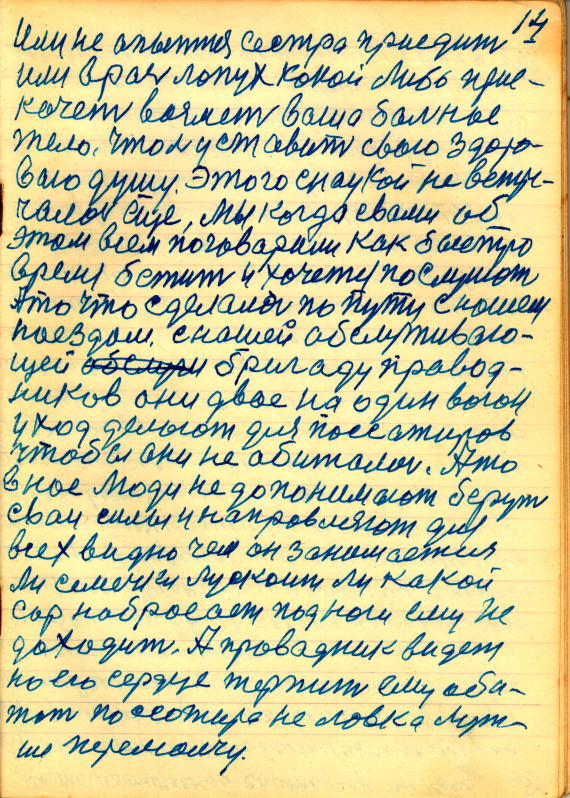 14
Или не опыття сестра приедит
или врач лопух какой либо прие-
качет возмет ваша болное
тело. Чтоли уставить свою здоро-
ваю душу. Этого снаукой не велу-
чалои еще, мы когда свами об
этом всем поговарили как быстро
время бежит и хочетца послушот
Ато что сделалои по путу сношем
поездом. сношей обслуживаю-
щей бригаду провод-
ников они двое на один вогон
уход делоют для поссажиров
чтобы они не обиталои. Ато
вное люди не допонимают берут
сваи силы и напровляют для
всех видно чем он занимается
ли семечки лускоит ли какой
сор набросает под ноги ему не
доходит. А провадник видет
но его сердце терпит ему оби-
жат поссожира не ловка луч-
ше перемолчу.